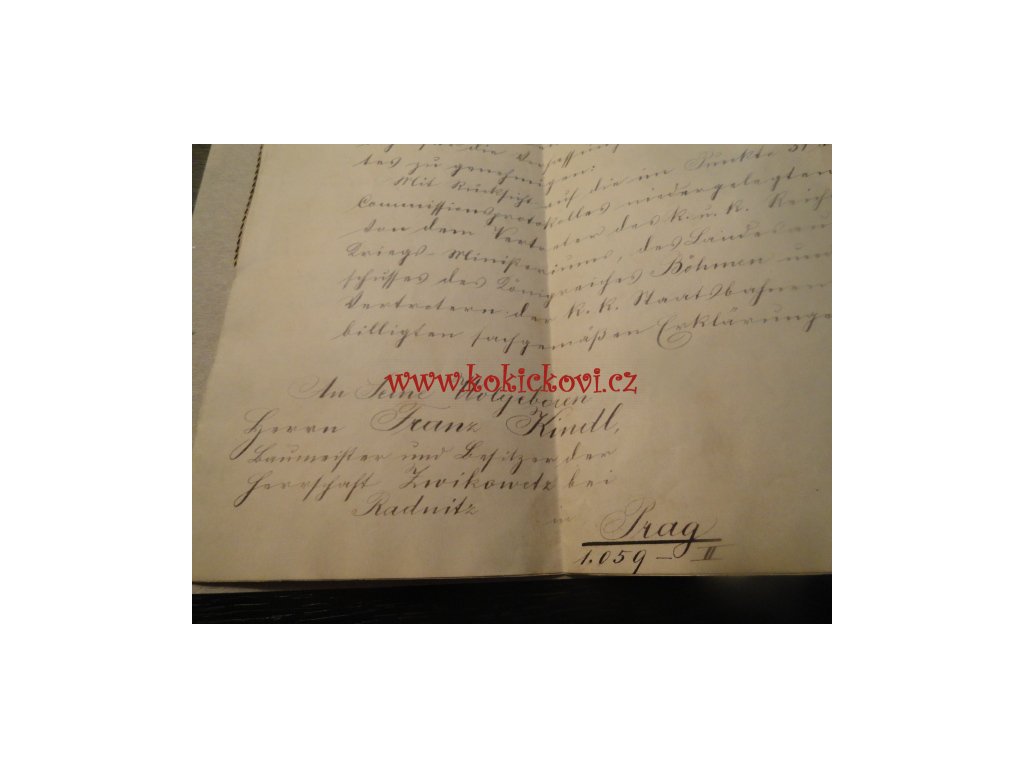 für die Verfassung
tes zu genehmigen:
Mit Rücksicht auf die im Punkte
Commissionsprotokolles niedergelegten
von dem Vertreter des k. u. k. Reichs
Kriegs-Ministeriums, des Landesaus
schusses des Königreiches Böhmen und
Vertretern der k. k. Staatsbahnen
billigten sachgemäßen Erklärungen
www.kokickovi.cz
An Seine Wolgeboren
Herrn Franz Kindl,
Baumeister und Besitzer der
Herrschaft Zwikowetz bei
Radnitz
in Prag
1.059 — II